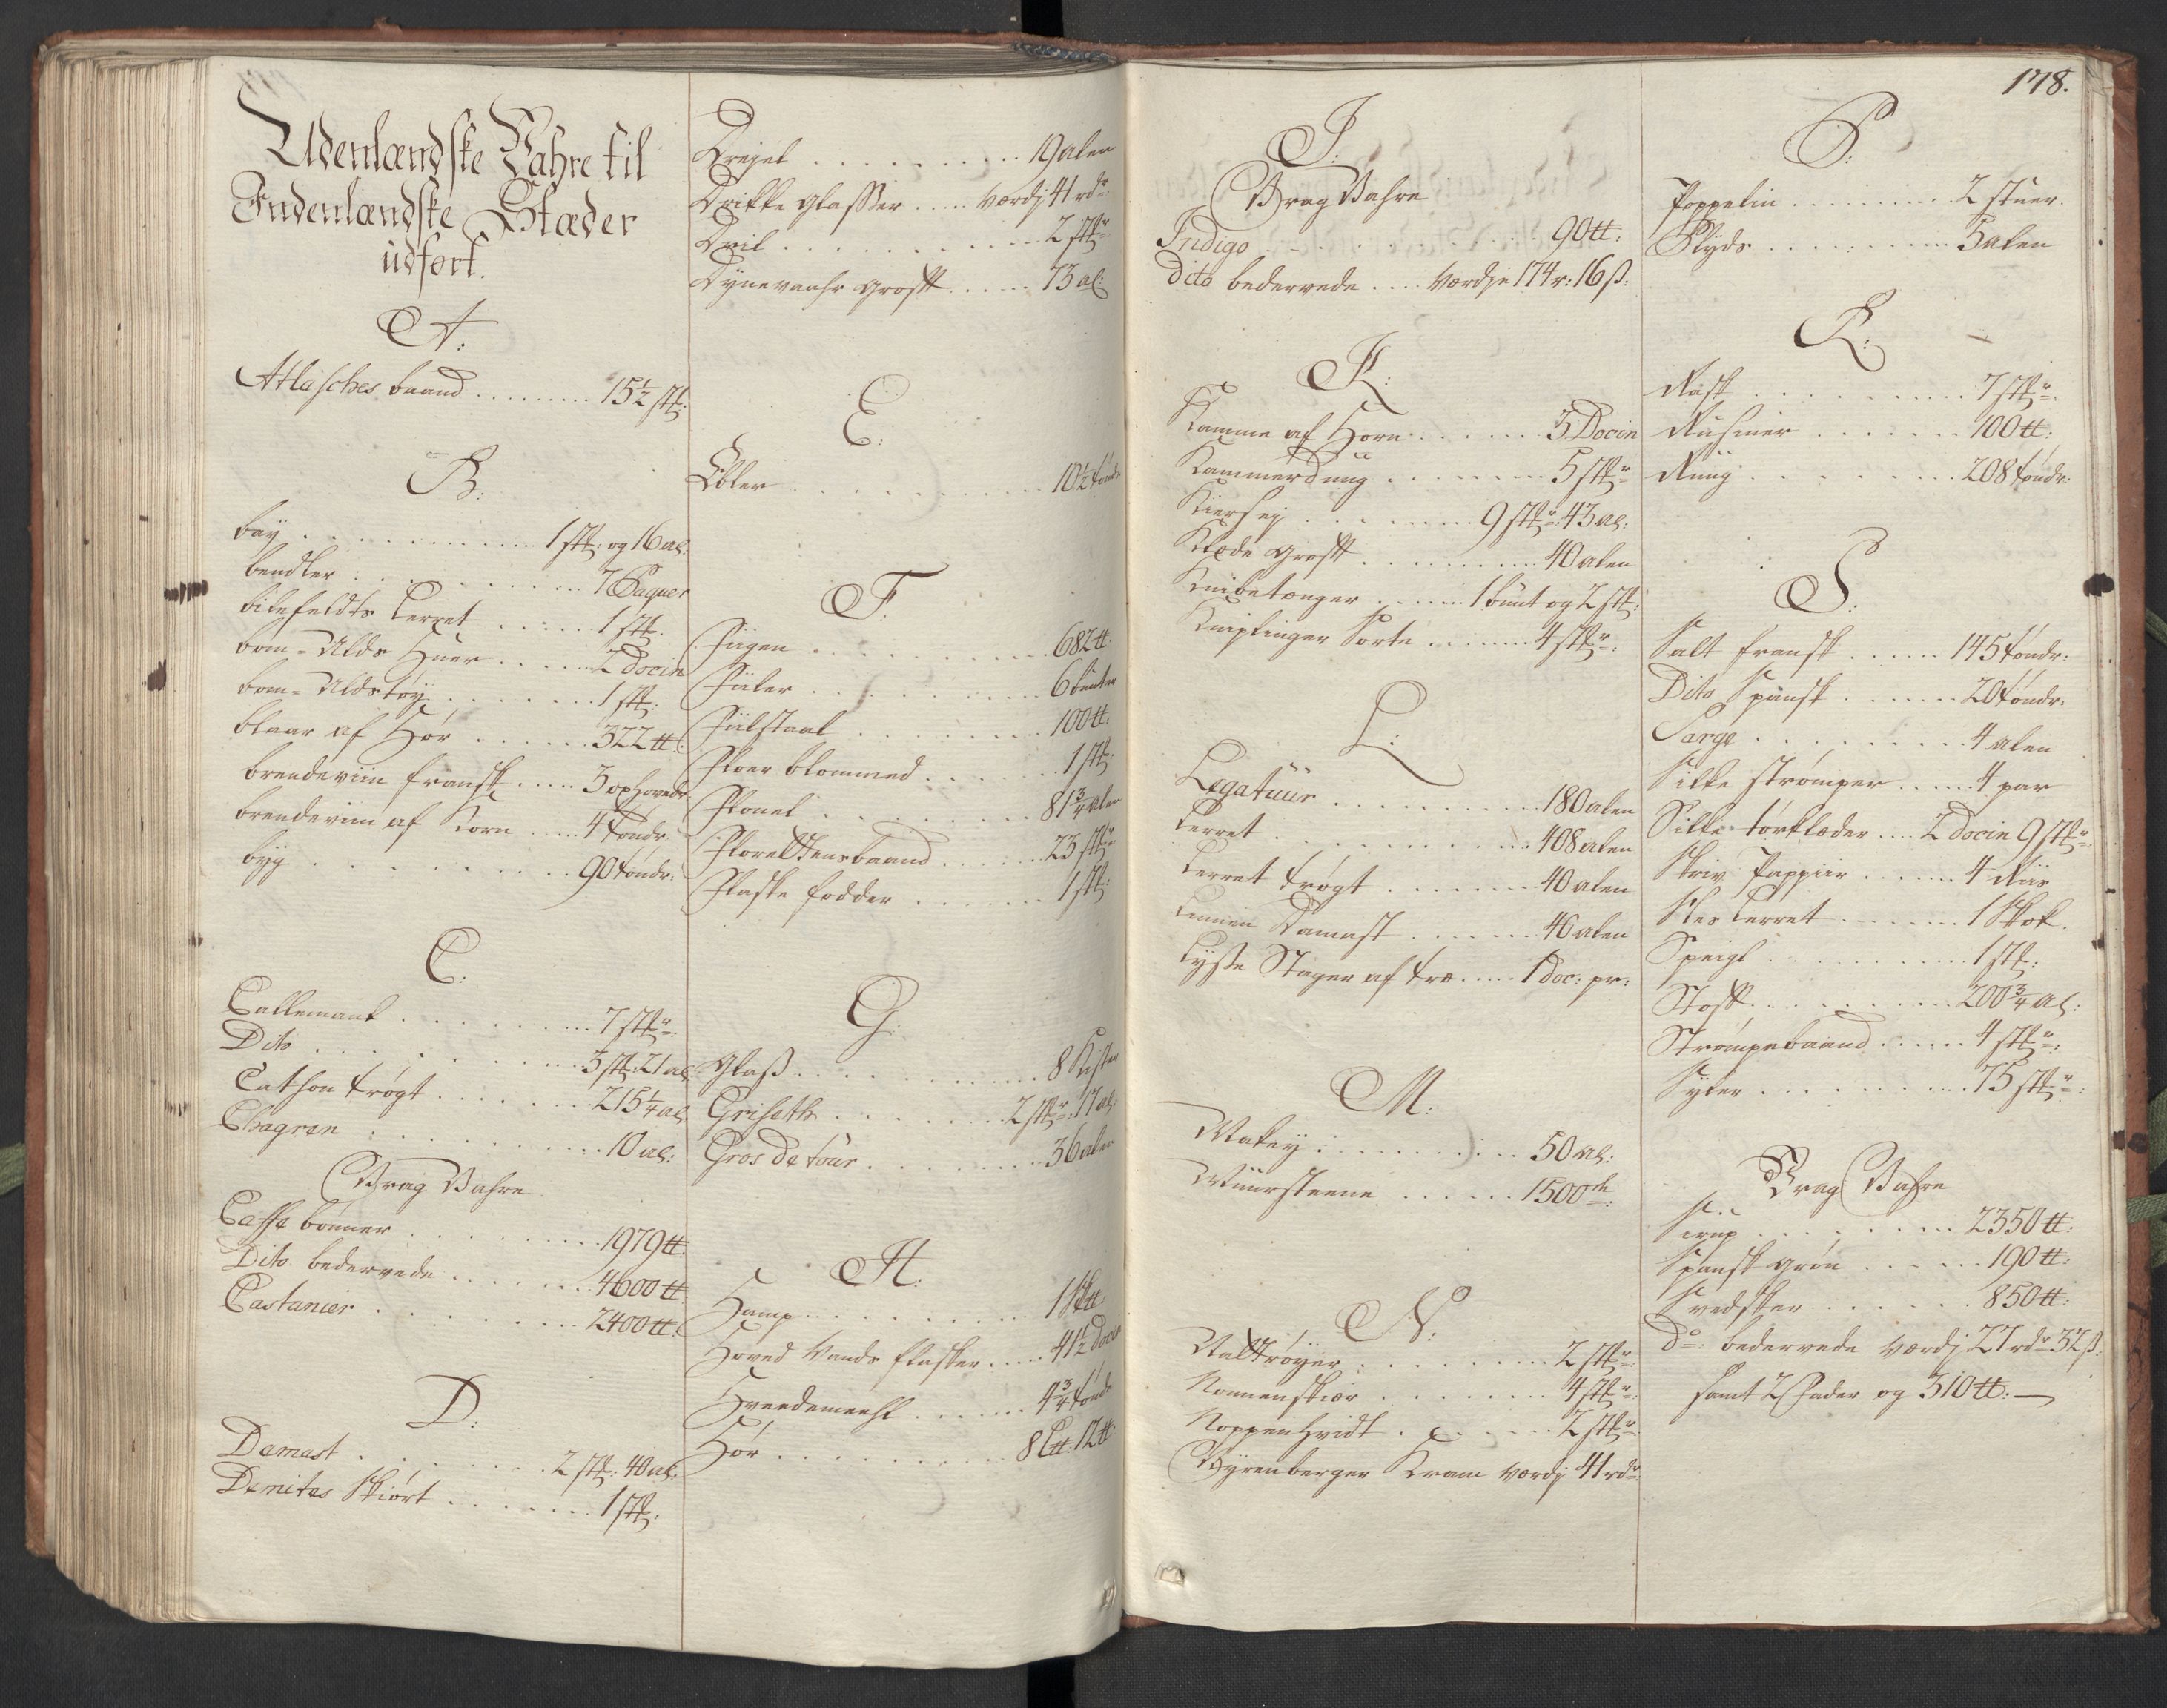 Udenlændske Vahre til
Indenlændske Stæder
udført.
A:
Atlasches baand . . . . . . . . 15½ stk:
B:
bay . . . . . . . . . . . . 1 stk: og 16 al:
bendler . . . . . . . . . . 7 Paquer
bilefeldts Lerret . . . . . 1 stk.
bom-Ulds Huer . . . . . 2 Docin
bom-Uldstøy . . . . . . . 1 stk:
blaar af Hør . . . . . . 322 ℔:
brendeviin fransk . . . . . 5 oxhoveder
brendeviin af Korn . . . . 4 tønder:
byg . . . . . . . . . . 90 tøndr:
C:
Callemank . . . . . . . . . 7 stkr:
Dito . . . . . . . . . . 3 stk: 21 al
Cathon trøgt . . . . . . 215¼ al
Chagren . . . . . . . . . 10 al:
Vrag Vahre
Caffe bønner . . . . . . . . 1979 ℔:
Dito bedervede . . . . . . 4600 ℔:
Castanier . . . . . . . . 2400 ℔:
D:
Damast . . . . . . . . 2 stk: 40 al:
Demites Skiørt . . . . . . 1 stk:
Drejel . . . . . . . . . 19 alen
Drikke glasser . . . . værdj 41 rdr:
Dril . . . . . . . . . . . 2 stkr
Dynevaahr groft . . . . . 73 al:
E:
Ebler . . . . . . . . . . . 10½ tønde
F:
Figen . . . . . . . . . . 682 ℔:
Fiiler . . . . . . . . . . 6 bunter
Fiilstaal . . . . . . . . 100 ℔:
Floer blommed . . . . . . 1 stk:
Flonel . . . . . . . . . 81¾ alen
Florettensbaand . . . . . 23 stkr
Flaske fodder . . . . . . 1 stk:
G:
Glaß . . . . . . . . . . 8 Kister
Griseth . . . . . . . 2 stkr: 17 al:
Gros de tour . . . . . . . 36 alen
H:
Hamp . . . . . . . . . . 1 Sk℔:
Hoved Vands flasker . . . . 41½ Docin
Hveedemeehl . . . . . . 4¾ tønde
Hør . . . . . . . . . . 8 L℔: 12 ℔
178.
I:
Vrag Vahre
Indigo . . . . . . . . . . . 90 ℔:
Dito bedervede . . . . værdje 174 r: 16 ß:
K:
Kamme af Horn . . . . . . 3 Docin
Kammerdug . . . . . . . . 5 stkr
Kiersej . . . . . . . . 9 stkr: 43 al:
Klæde groft . . . . . . . . . 40 alen
Knibetænger . . . . . 1 bunt og 2 stk:
Kniplinger Sorte . . . . . . 4 stkr:
L:
Legatuur . . . . . . . . . . 180 alen
Lerret . . . . . . . . . . . 408 alen
Lerret trøgt . . . . . . . . 40 alen
Linnen Damast . . . . . . . 46 alen
Lyse Stager af træ . . . . . 1 doc: pr:
M:
Makey . . . . . . . . . . . 50 al:
Muursteene . . . . . . 1500 de:
N:
Nattrøyer . . . . . . . . . 2 stkr:
Nonnenskiær . . . . . . . . 4 stkr:
Noppenhvidt . . . . . . . . 2 stkr:
Nyrenberger Kram værdj 41 rdr:
P:
Poppelin . . . . . . . . . 2 stuer.
Plyds . . . . . . . . . . . 5 alen
R:
Rask . . . . . . . . . . . 7 stkr:
Rusiner . . . . . . . 100 ℔:
Rüug . . . . . . . . . . 208 tøndr:
S:
Salt fransk . . . . . 145 tøndr:
Dito Spansk . . . . . . . 20 tøndr:
Sarge . . . . . . . . . . . 4 alen
Silke strømper . . . . . 4 par
Silke tørklæder . . . . 2 Docin 9 stkr:
Skriv Pappiir . . . . . . 4 Riis
Sles Lerret . . . . . . . . 1 Skok.
Speigl . . . . . . . . . . 1 stk:
Stoff . . . . . . . . . . 200¾ al:
Strømpebaand . . . . . . 4 stkr:
Syler . . . . . . . . . . 75 stkr:
Vrag Vahre
Sirup . . . . . . . . . 2350 ℔:
Spansk grøn . . . . . . . 190 ℔:
Svedsker . . . . . . . 850 ℔:
Do: bedervede værdj 27 rdr 32 ß:
samt 2 Fader og 310 ℔: —